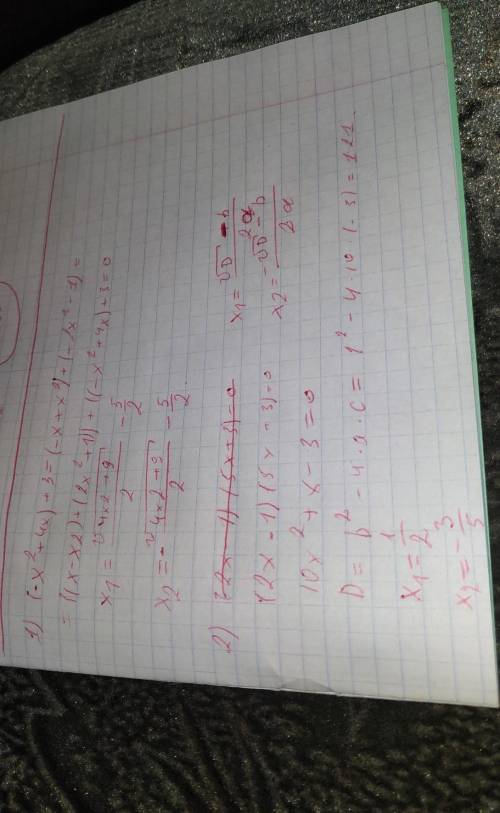 1) (-x² + 4x) + 3 = (-x + x²) + (-2x² - 1) =
= ((x - x2) + (2x² + 1)) + ((-x² + 4x) + 3 = 0
x1 = √4x2 + 9 / 2 - 5/2
x2 = -√4x2 + 9 / 2 - 5/2
2) (2x - 1)(5x + 3) = 0
(2x - 1)(5x - 3) = 0
10x² + x - 3 = 0
x1 = √D - b / 2a
x2 = -√D - b / 2a
D = b² - 4·a·c = 1² - 4·10·(-3) = 121
x1 = 1/2
x2 = -3/5